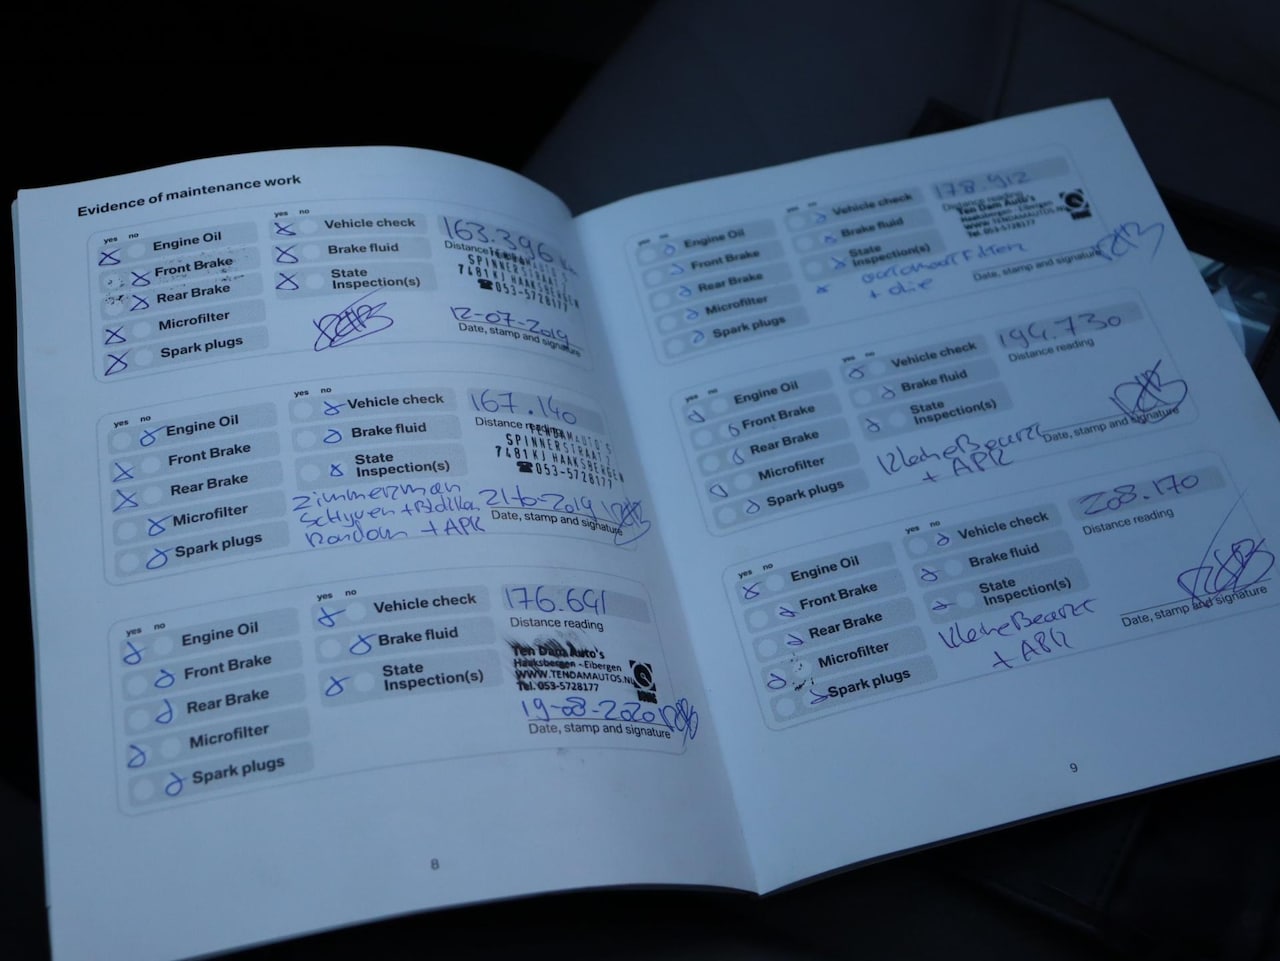 Evidence of maintenance work
yes no
Engine Oil
Front Brake
Rear Brake
Microfilter
Spark plugs
yes no
Vehicle check
Brake fluid
State
Inspection(s)
163.396 km
Distance
SPINNERSTRAAT 2
7481KJ HAAKSBERGEN
☎053-5728177
12-07-2019
Date, stamp and signature
yes no
Engine Oil
Front Brake
Rear Brake
Microfilter
Spark plugs
yes no
Vehicle check
Brake fluid
State
Inspection(s)
Zimmerman
Schyven + Blokken
Rondom + APK
167.140
Distance reading
TENDAMAUTO'S
SPINNERSTRAAT 2
7481KJ HAAKSBERGEN
☎053-5728177
21-10-2019
Date, stamp and signature
yes no
Engine Oil
Front Brake
Rear Brake
Microfilter
Spark plugs
yes no
Vehicle check
Brake fluid
State
Inspection(s)
176.641
Distance reading
Ten Dam Auto's
Haaksbergen - Eibergen
WWW.TENDAMAUTOS.NL
Tel. 053-5728177
19-08-2020
Date, stamp and signature
8
yes no
Engine Oil
Front Brake
Rear Brake
Microfilter
Spark plugs
yes no
Vehicle check
Brake fluid
State
Inspection(s)
+ olie
178.912
Distance reading
Ten Dam Auto's
Haaksbergen - Eibergen
WWW.TENDAMAUTOS.NL
Tel. 053-5728177
Date, stamp and signature
yes no
Engine Oil
Front Brake
Rear Brake
Microfilter
Spark plugs
yes no
Vehicle check
Brake fluid
State
Inspection(s)
Kleine Beurt
+ APK
194.730
Distance reading
Date, stamp and signature
yes no
Engine Oil
Front Brake
Rear Brake
Microfilter
Spark plugs
yes no
Vehicle check
Brake fluid
State
Inspection(s)
Kleine Beurt
+ APK
208.170
Distance reading
Date, stamp and signature
9